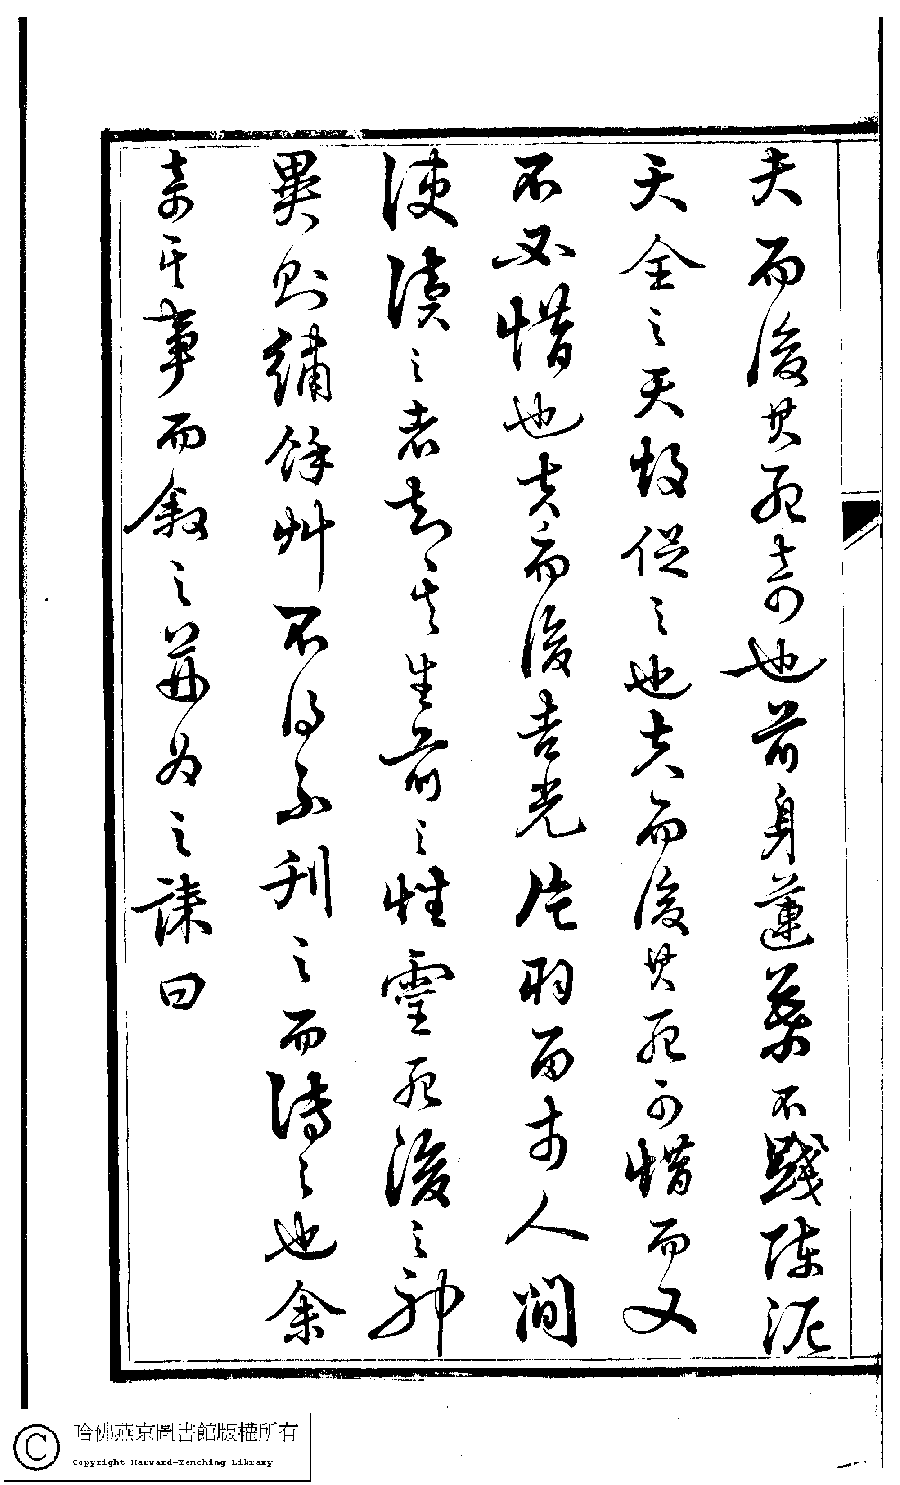 夫而後其死奇也前身蓮蘂不踐陳泥
天全之天故促之也夫而後其死可惜而又
不必惜也夫而後吉光片羽而在人間
使讀之者知其生前之性靈死後之神
異則繡餘艸不得不刊之而傳之也余
奇其事而敘之并為之誄曰
哈佛燕京圖書館版權所有
Copyright Harvard-Yenching Library